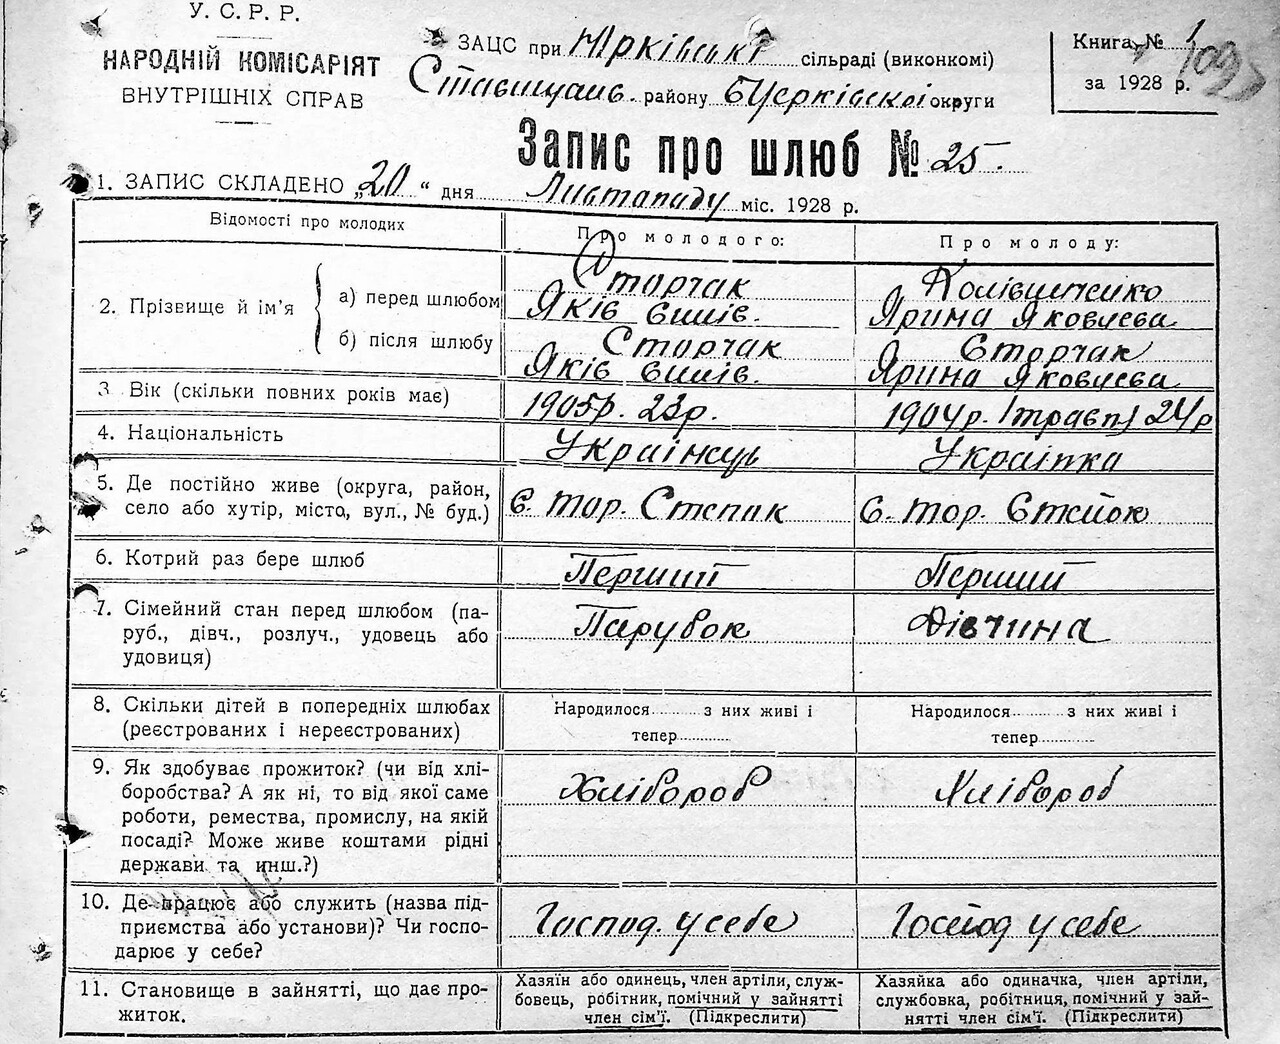 У. С. Р. Р.
НАРОДНІЙ КОМІСАРІЯТ
ВНУТРІШНІХ СПРАВ
ЗАЦС при Юрківські сільраді (виконкомі)
Ставищанс. району БЦерківської округи
Книга № 1
за 1928 р.
Запис про шлюб № 25.
1. ЗАПИС СКЛАДЕНО „20“ дня Листопаду міс. 1928 р.
Відомості про молодих
Про молодого:
Про молоду:
2. Прізвище й ім'я
а) перед шлюбом
Сторчак
Яків
Ярина Яковлева
б) після шлюбу
Сторчак
Яків
Сторчак
Ярина Яковлева
3. Вік (скільки повних років має)
1905р. 23р.
1904р. (травп) 24р
4. Національність
Українець
Українка
5. Де постійно живе (округа, район,
село або хутір, місто, вул., № буд.)
с. Тор. Степок
с. Тор. Степок
6. Котрий раз бере шлюб
Перший
Перший
7. Сімейний стан перед шлюбом (па-
руб., дівч., розлуч., удовець або
удовиця)
Парубок
Дівчина
8. Скільки дітей в попередніх шлюбах
(реєстрованих і нереєстрованих)
Народилося......... з них живі і
тепер.........
Народилося......... з них живі і
тепер.........
9. Як здобуває прожиток? (чи від хлі-
боробства? А як ні, то від якої саме
роботи, ремества, промислу, на якій
посаді? Може живе коштами рідні
держави та инш.?)
Хлібороб
Хлібороб
10. Де працює або служить (назва під-
приємства або установи)? Чи госпо-
дарює у себе?
Господ. у себе
Господ у себе
11. Становище в зайнятті, що дає про-
житок.
Хазяїн або одинець, член артіли, служ-
бовець, робітник, помічний у зайнятті
член сім'ї. (Підкреслити)
Хазяйка або одиначка, член артіли,
службовка, робітниця, помічний у зай-
нятті член сім'ї. (Підкреслити)